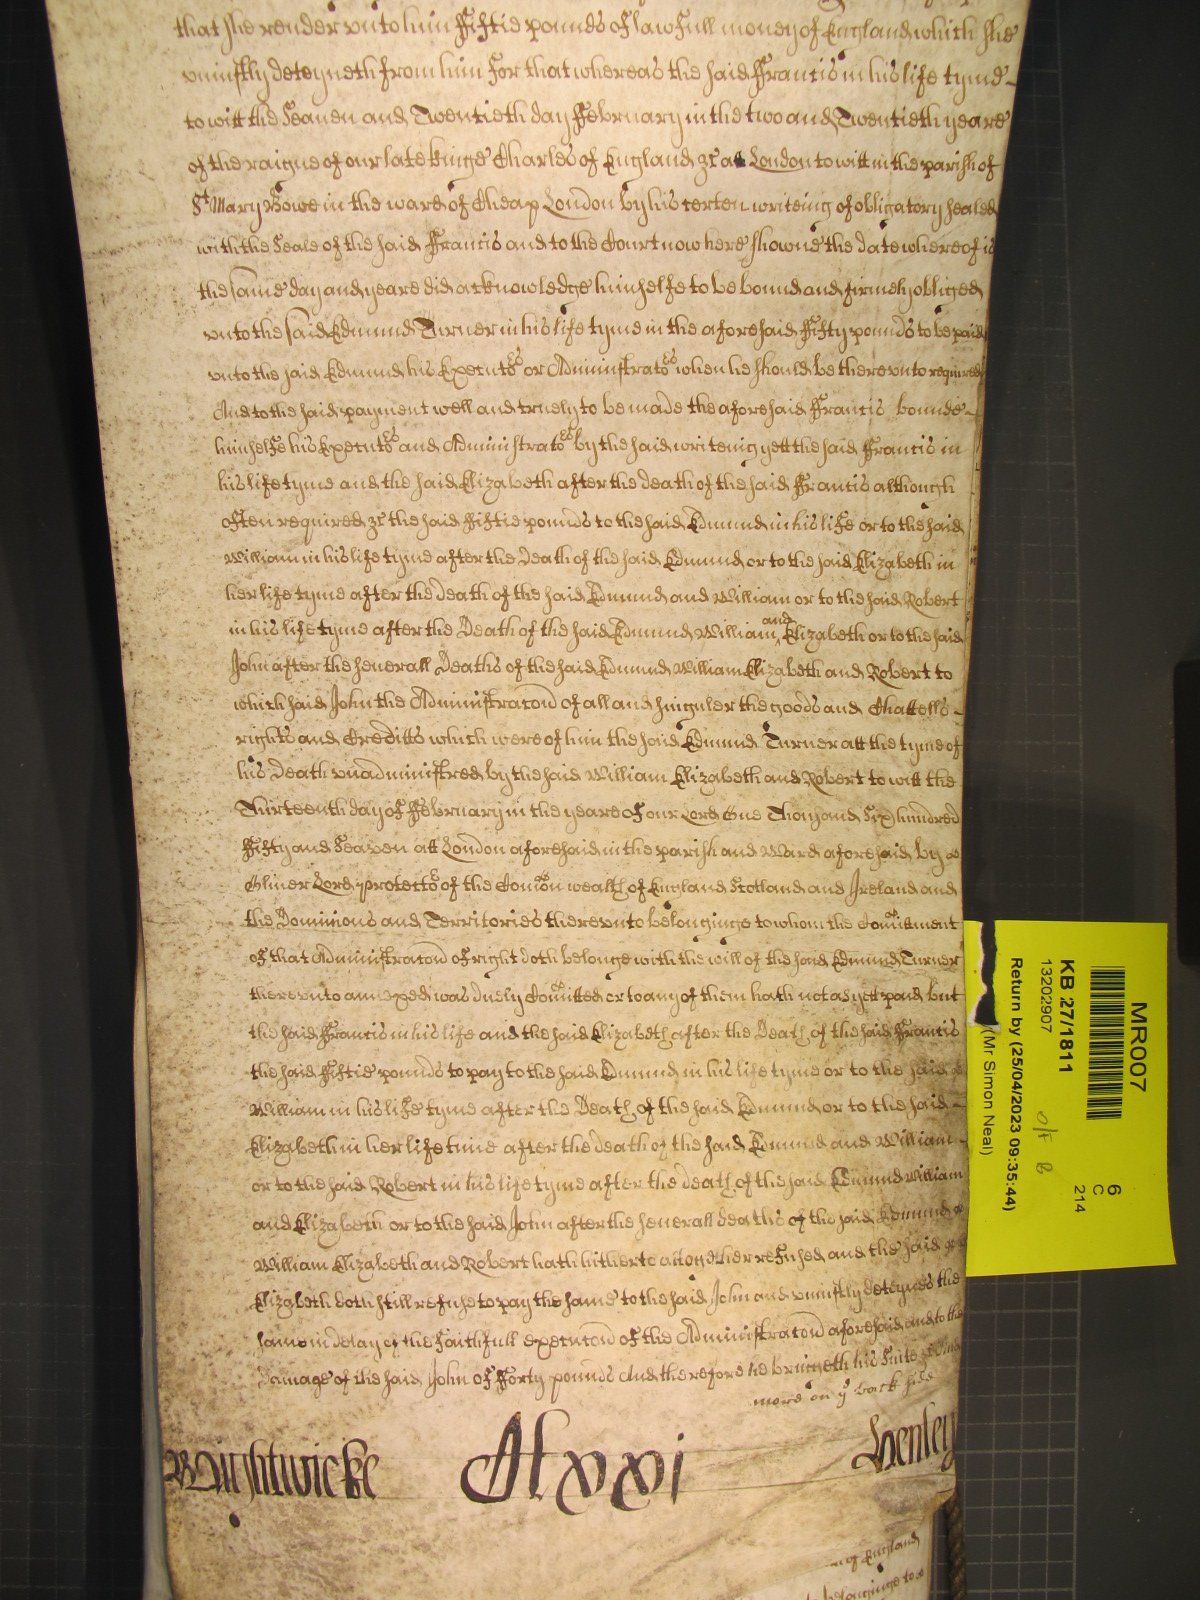 that she render vnto him ffiftie pounds of lawfull money of England which she
vniustly deteyneth from him For that whereas the said Francis in his life tyme
to witt the Seauen and Twentieth day of February in the two and Twentieth yeare
of the raigne of our late kinge Charles of England &c at London to witt in the parish of
St Mary Bowe in the ward of Cheap London by his certen writeing of obligatory sealed
with the Seale of the said Francis and to the Court now here showne the date whereof is
the same day and yeare did acknowledge himselfe to be bound and firmely obliged
vnto the said Edmund Turner in his life tyme in the aforesaid ffifty pounds to be paid
vnto the said Edmund his Executors or Administrators when he should be therevnto required
And to the said payment well and truely to be made the aforesaid Francis bounde
himselfe his Executors and Administrators by the said writeing yett the said Francis in
his life tyme and the said Elizabeth after the death of the said Francis although
often required &c the said ffiftie pounds to the said Edmund in his life or to the said
William in his life tyme after the Death of the said Edmund or to the said Elizabeth in
her life tyme after the death of the said Edmund and William or to the said Robert
in his life tyme after the Death of the said Edmund William and Elizabeth or to the said
John after the seuerall Deaths of the said Edmund William Elizabeth and Robert to
which said John the Administracon of all and singuler the goods and Chattells
rights and Creditts which were of him the said Edmund Turner att the tyme of
his Death vnadministred by the said William Elizabeth and Robert to witt the
Thirteenth day of February in the yeare of our Lord One Thousand Six hundred
ffifty and Seaven att London aforesaid in the parish and Ward aforesaid by
Oliuer Lord protector of the Comon wealth of England Scotland and Ireland and
the Dominions and Territories therevnto belonginge to whom the Comittment
of that Administracon of right doth belonge with the will of the said Edmund Turner
therevnto annexed was duely Comitted or to any of them hath not as yett paid but
the said Francis in his life and the said Elizabeth after the Death of the said Francis
the said ffiftie pounds to pay to the said Edmund in his life tyme or to the said
William in his life tyme after the Death of the said Edmund or to the said
Elizabeth in her life time after the death of the said Edmund and William
or to the said Robert in his life tyme after the death of the said Edmund William
and Elizabeth or to the said John after the seuerall deaths of the said Edmund
William Elizabeth and Robert hath hitherto altogether refused and the said
Elizabeth doth still refuse to pay the same to the said John and vniustly deteynes the
same in delay of the faithfull execucon of the Administracon aforesaid and to the
damage of the said John of fforty pounds And therefore he bringeth his suite &c And
more on ye back side
Brightwicke At xxi Henley
of England
belonginge to
MR007
6
C
214
KB 27/1811
13202907
Return by (25/04/2023 09:35:44)
(Mr Simon Neal)